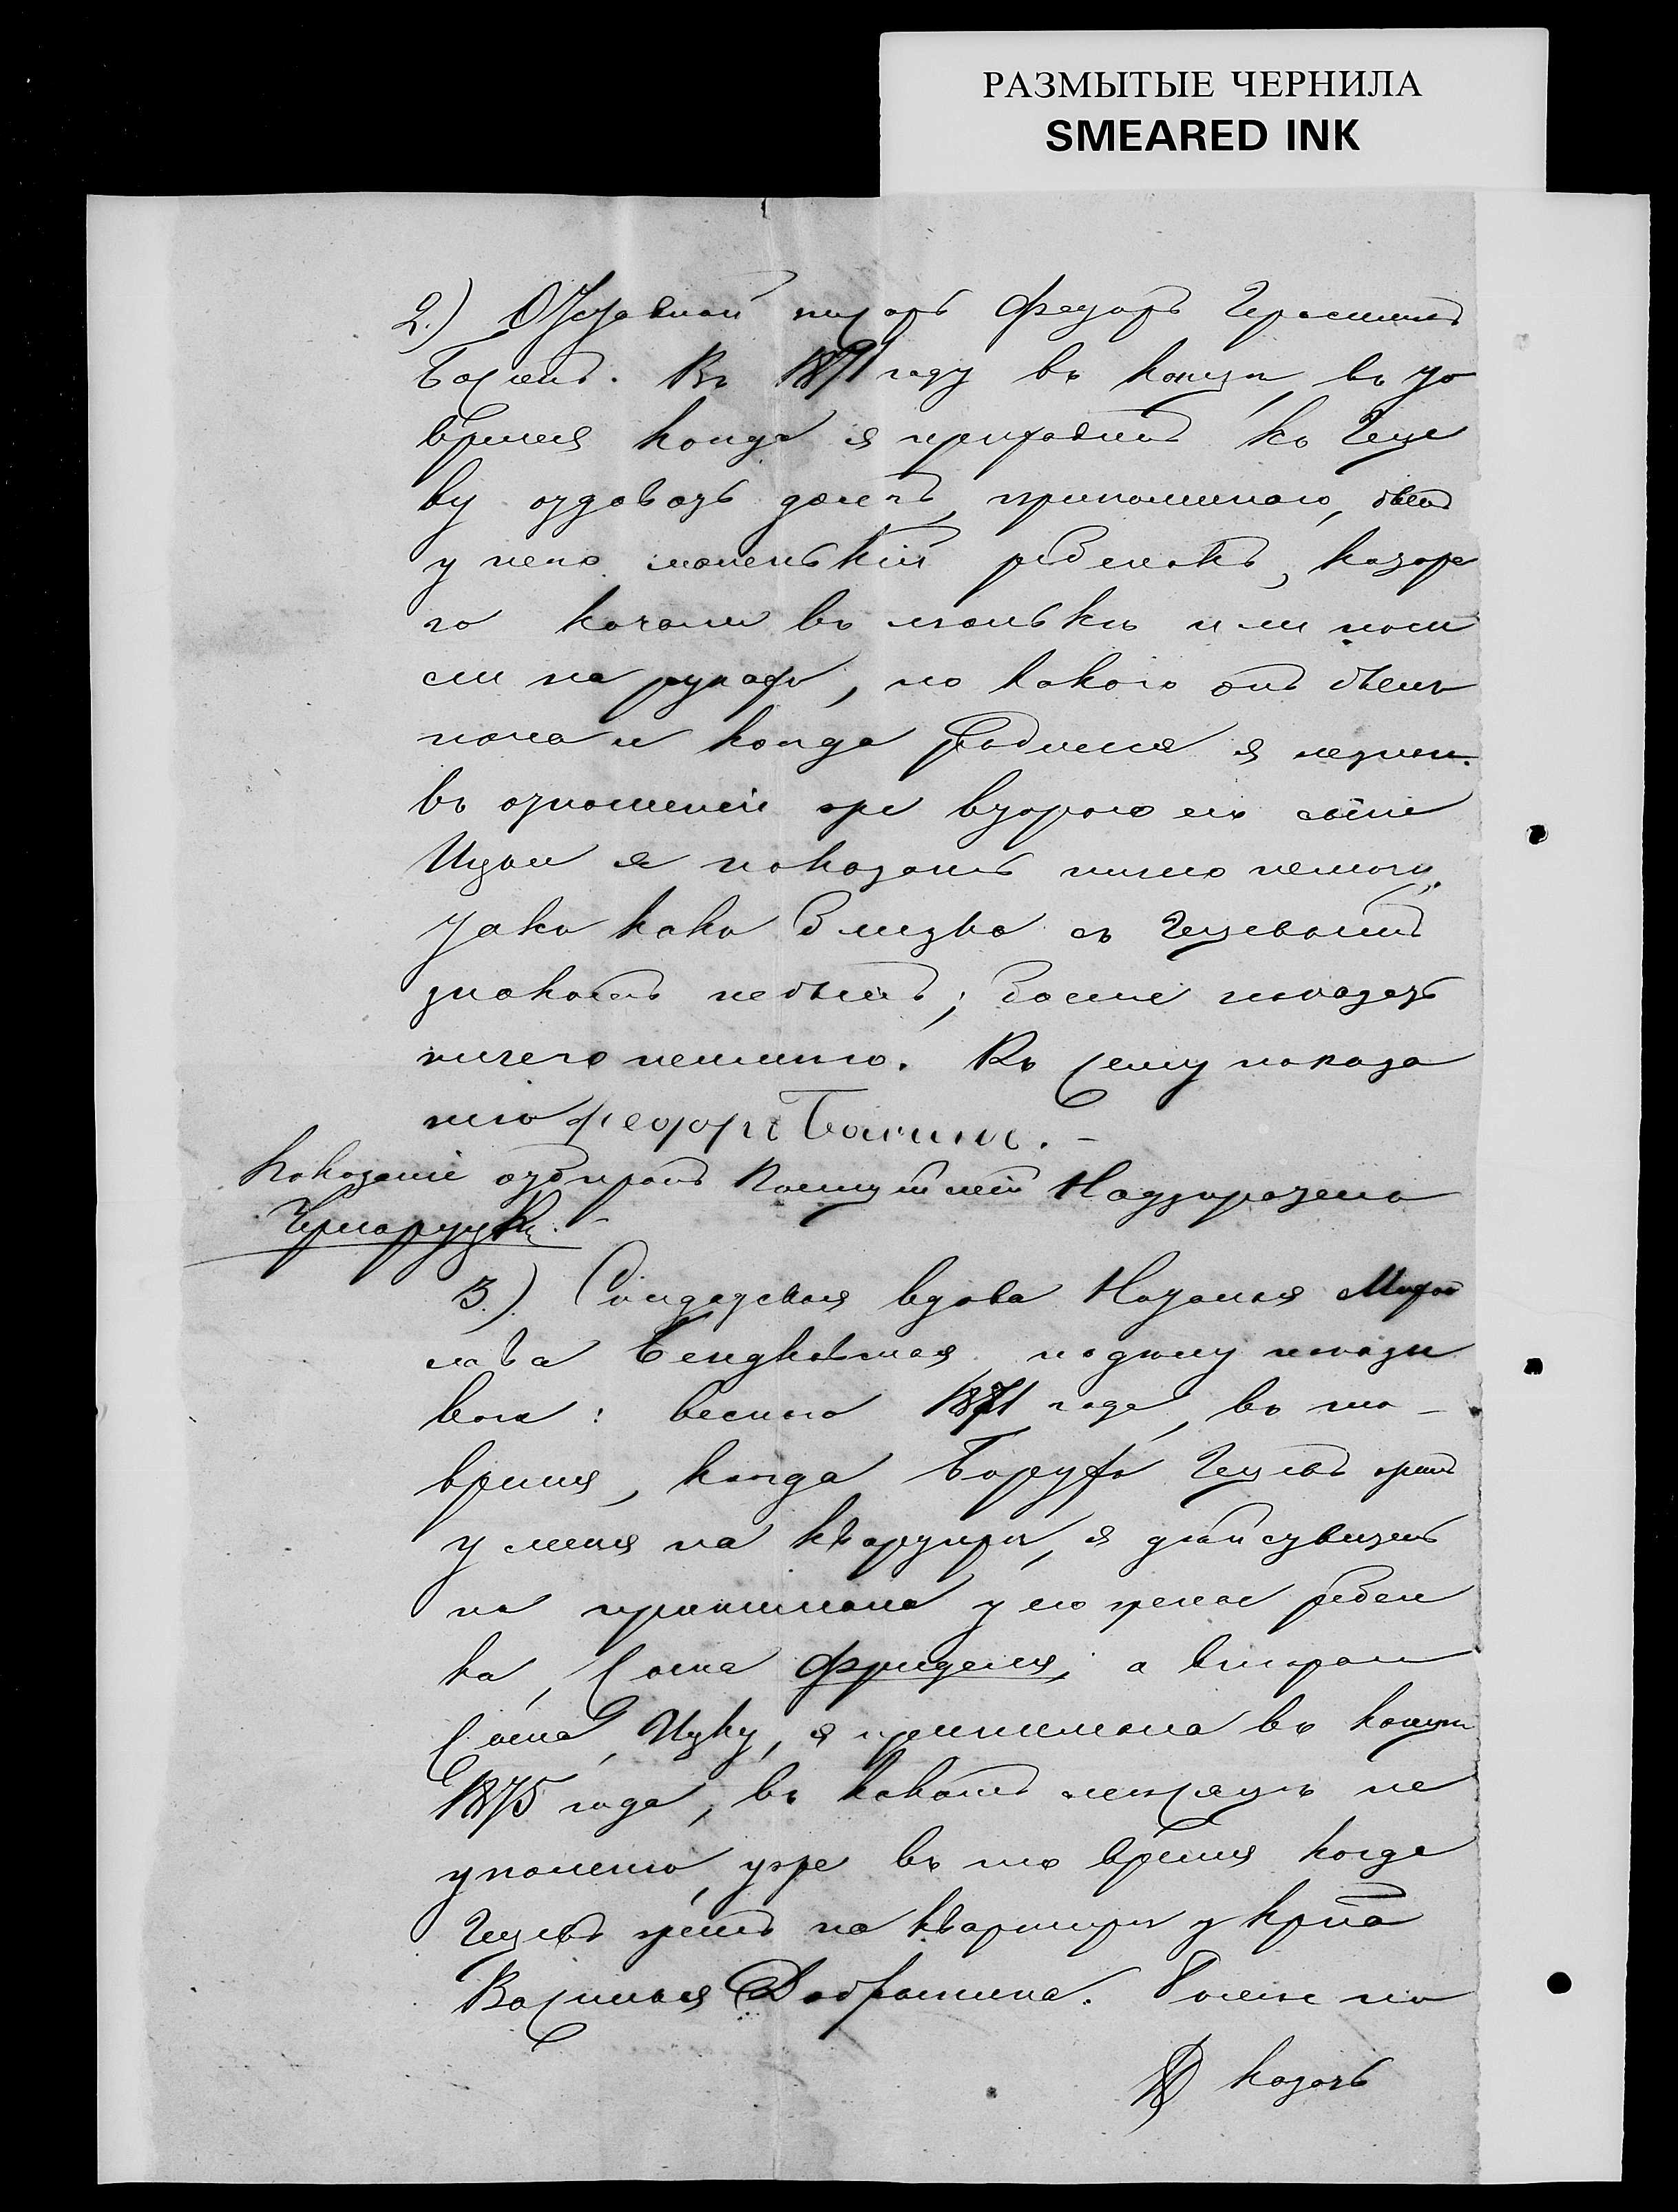 РАЗМЫТЫЕ ЧЕРНИЛА
SMEARED INK
2.) Отставной писарь Федоръ Герасимовъ
Въ 1871 году въ концѣ, въ то
время когда я приходилъ къ Геце
ву отдовать долгъ, припоминаю, былъ
у него маленькій ребенокъ, которо
го качали въ люлькѣ или носи
ли на рукахъ, но какого онъ былъ
пола и когда родился я незнаю.
въ отношеніи же второго его сына
Ицки я показать ничего немогу,
такъ какъ близко съ Гецевымъ
знакомъ небылъ; болѣе показать
ничего неимѣю. Къ сему показа
нію Федоръ
Показаніе отбиралъ Полицейскій Надзиратель
3.) Солдатская вдова Наталья
лова подтому показы
ваю: весною 1871 года, въ то
время, когда Борухъ Гецевъ жилъ
у меня на квартирѣ, я дѣйствитель
но принимала у его жены ребен
ка, сына Фриделя, а второго
сына, Ицку, я принимала въ концѣ
1875 года, въ какомъ мѣсяцѣ не
упомню, уже въ то время когда
Гецевъ жилъ на квартирѣ у кр-на
Василья Добрынина. Болѣе по
казать